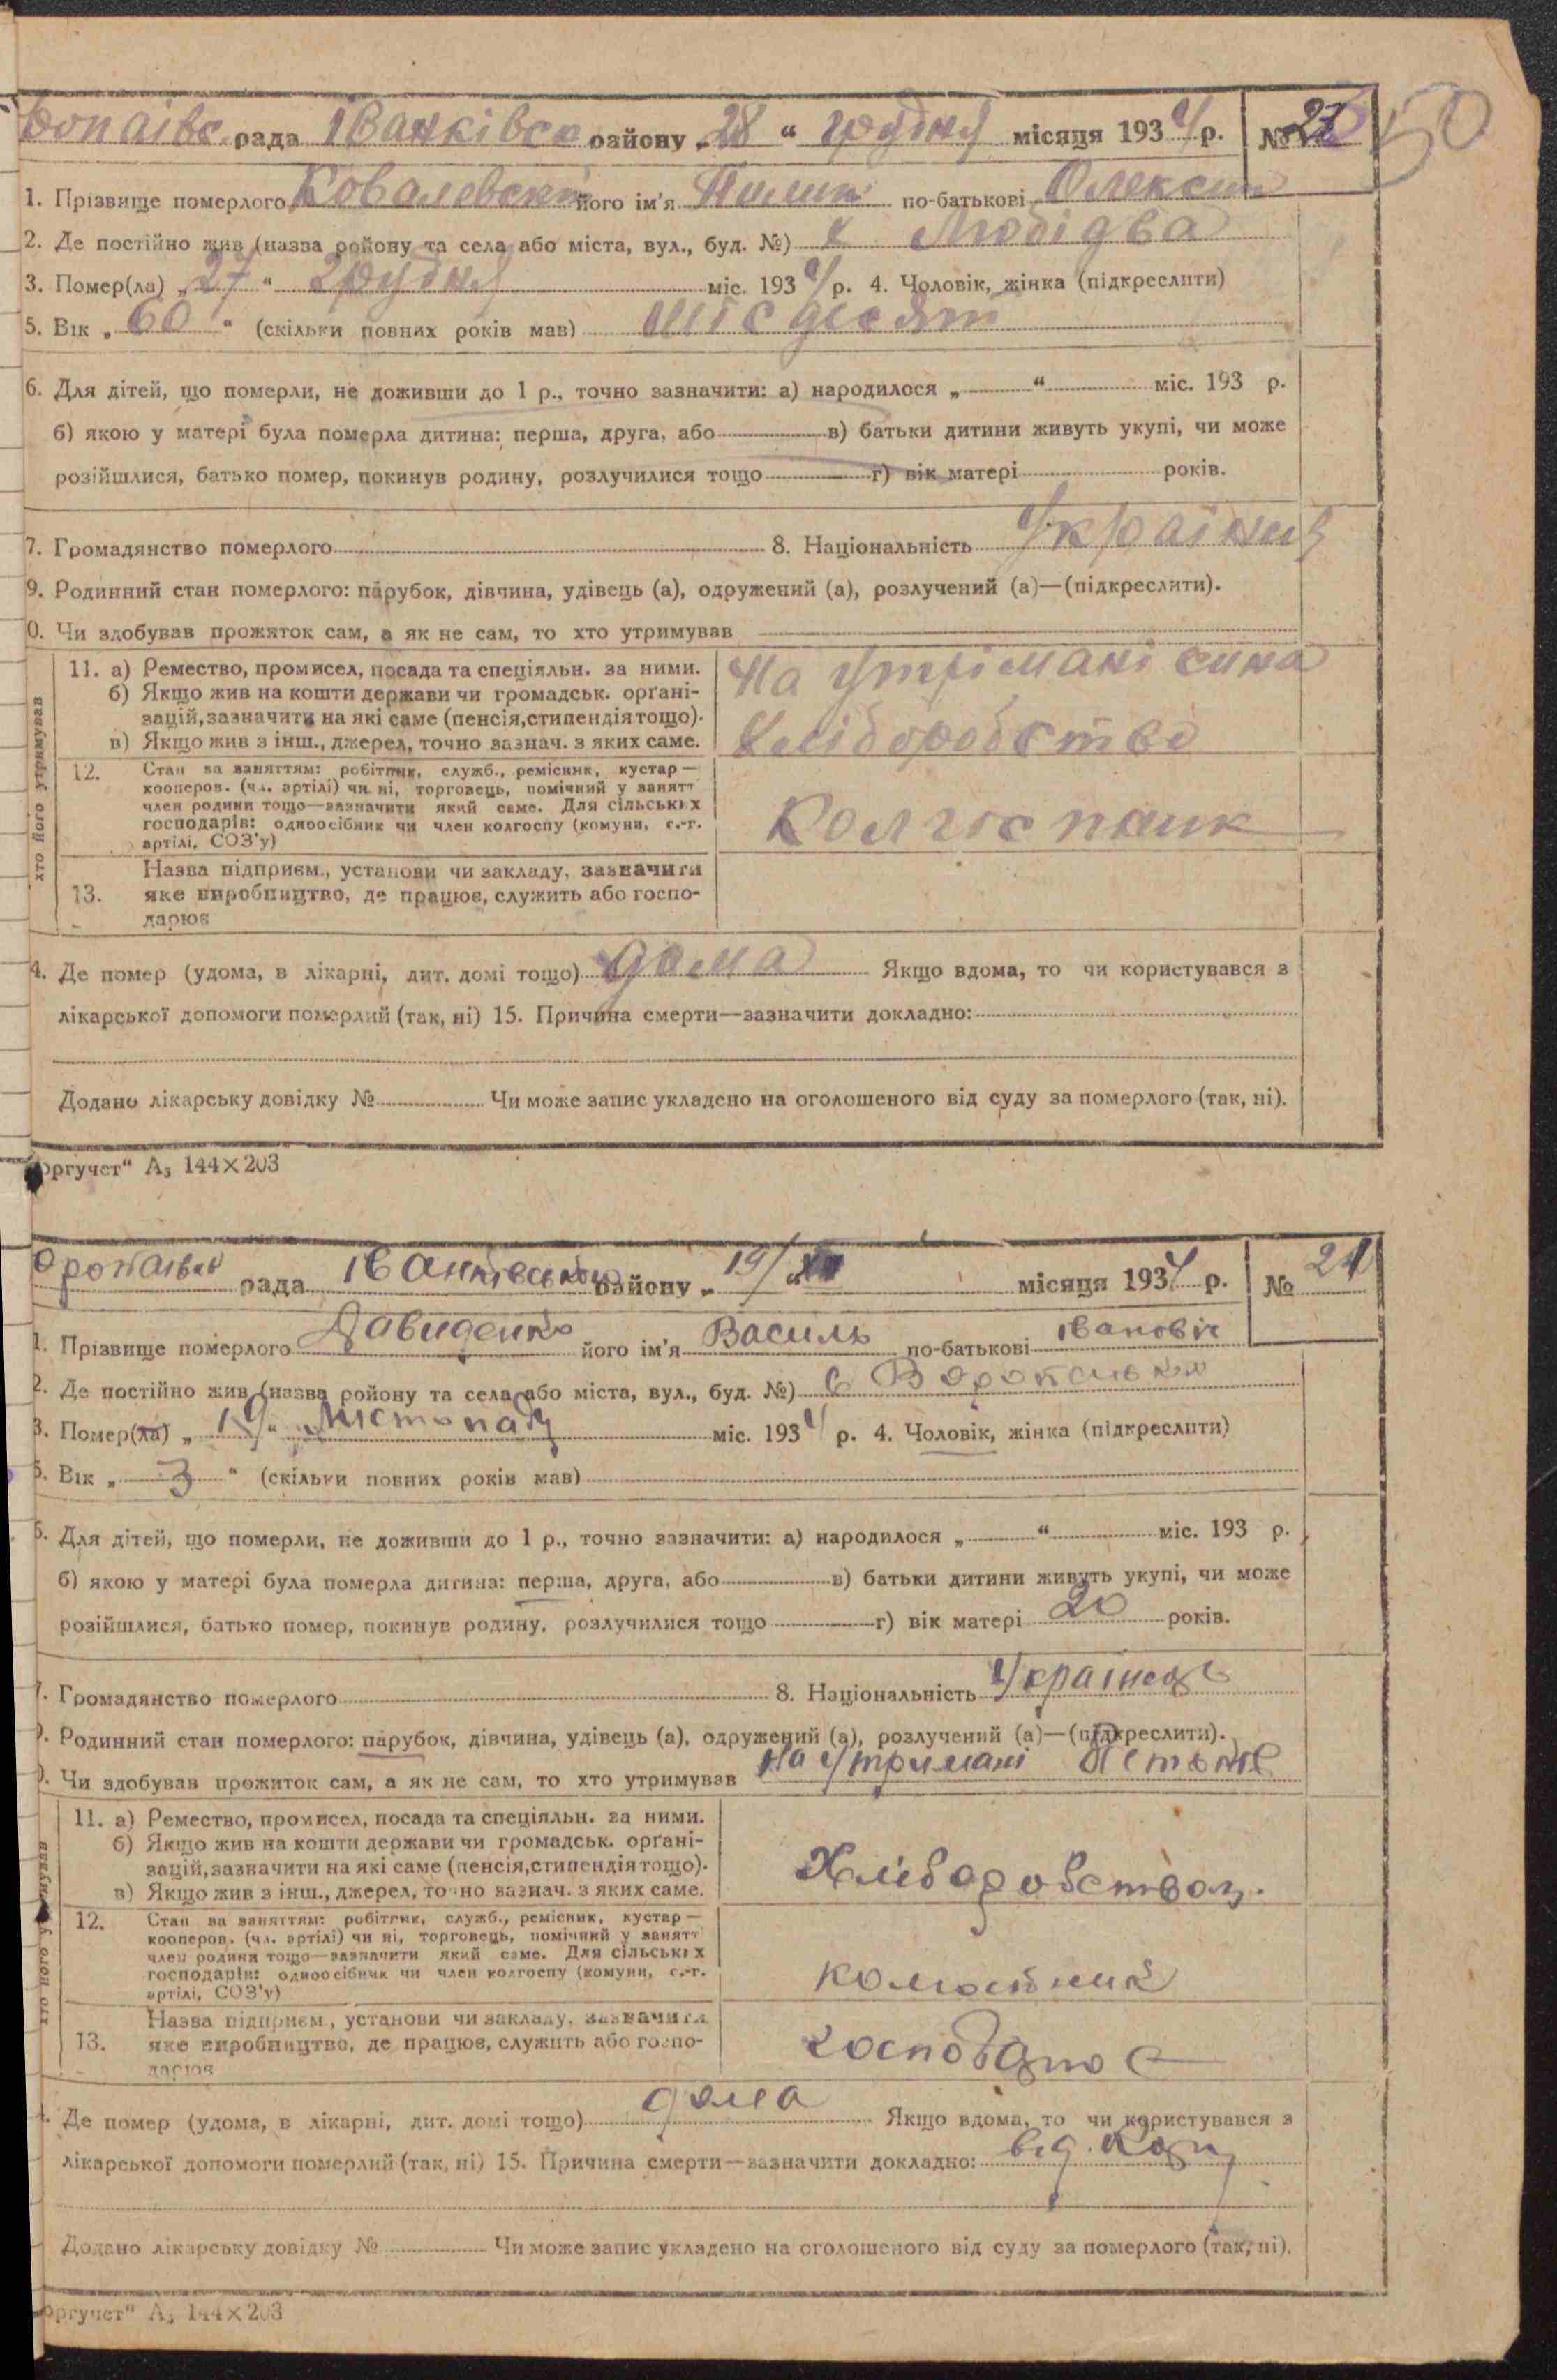 рада Іванківск району „28“ грудня місяця 1934 р. № 23
50
1. Прізвище померлого Ковалевский його ім'я Пилип по-батькові Олексии
2. Де постійно жив (назва ройону та села або міста, вул., буд. №) х
3. Помер(ла) „27“ грудня міс. 1934 р. 4. Чоловік, жінка (підкреслити)
5. Вік „60“ (скільки повних років мав) шісдесят
6. Для дітей, що померли, не доживши до 1 р., точно зазначити: а) народилося „ “ міс. 193 р.
б) якою у матері була померла дитина: перша, друга, або в) батьки дитини живуть укупі, чи може
розійшлися, батько помер, покинув родину, розлучилися тощо г) вік матері років.
7. Громадянство померлого 8. Національність Україниц
9. Родинний стан померлого: парубок, дівчина, удівець (а), одружений (а), розлучений (а)—(підкреслити).
0. Чи здобував прожиток сам, а як не сам, то хто утримував
хто його утримував
11. а) Ремество, промисел, посада та спеціяльн. за ними. На утрімані сина
б) Якщо жив на кошти держави чи громадськ. орґані-
зацій, зазначити на які саме (пенсія, стипендія тощо). Хліборобство
в) Якщо жив з інш., джерел, точно зазнач. з яких саме.
12. Стан за заняттям: робітник, служб., ремісник, кустар—
кооперов. (чл. артілі) чи ні, торговець, помічний у занятт
член родини тощо—зазначити який саме. Для сільських
господарів: одноосібник чи член колгоспу (комуни, с.-г. Колгоспник
артілі, СОЗ'у)
Назва підприєм., установи чи закладу, зазначити
13. яке виробництво, де працює, служить або госпо-
дарює
4. Де помер (удома, в лікарні, дит. домі тощо) дома Якщо вдома, то чи користувався з
лікарської допомоги померлий (так, ні) 15. Причина смерти—зазначити докладно:
Додано лікарську довідку № Чи може запис укладено на оголошеного від суду за померлого (так, ні).
оргучет“ А₃ 144×203
рада Іванківською району „19/“ХІ місяця 1934 р. № 21
1. Прізвище померлого Давиденко його ім'я Василь по-батькові івановіч
2. Де постійно жив (назва ройону та села або міста, вул., буд. №) с
3. Помер(ла) „19“ Листопаду міс. 1934 р. 4. Чоловік, жінка (підкреслити)
5. Вік „3“ (скільки повних років мав)
6. Для дітей, що померли, не доживши до 1 р., точно зазначити: а) народилося „ “ міс. 193 р.
б) якою у матері була померла дитина: перша, друга, або в) батьки дитини живуть укупі, чи може
розійшлися, батько помер, покинув родину, розлучилися тощо г) вік матері 20 років.
7. Громадянство померлого 8. Національність Українець
9. Родинний стан померлого: парубок, дівчина, удівець (а), одружений (а), розлучений (а)—(підкреслити).
0. Чи здобував прожиток сам, а як не сам, то хто утримував На утримані
хто його утримував
11. а) Ремество, промисел, посада та спеціяльн. за ними.
б) Якщо жив на кошти держави чи громадськ. орґані-
зацій, зазначити на які саме (пенсія, стипендія тощо). Хліборобством.
в) Якщо жив з інш., джерел, точно зазнач. з яких саме.
12. Стан за заняттям: робітник, служб., ремісник, кустар—
кооперов. (чл. артілі) чи ні, торговець, помічний у занятт
член родини тощо—зазначити який саме. Для сільських
господарів: одноосібник чи член колгоспу (комуни, с.-г. колгоспник
артілі, СОЗ'у)
Назва підприєм., установи чи закладу, зазначити
13. яке виробництво, де працює, служить або госпо- господарює
дарює
4. Де помер (удома, в лікарні, дит. домі тощо) дома Якщо вдома, то чи користувався з
лікарської допомоги померлий (так, ні) 15. Причина смерти—зазначити докладно: від. кору
Додано лікарську довідку № Чи може запис укладено на оголошеного від суду за померлого (так, ні).
оргучет“ А₃ 144×203